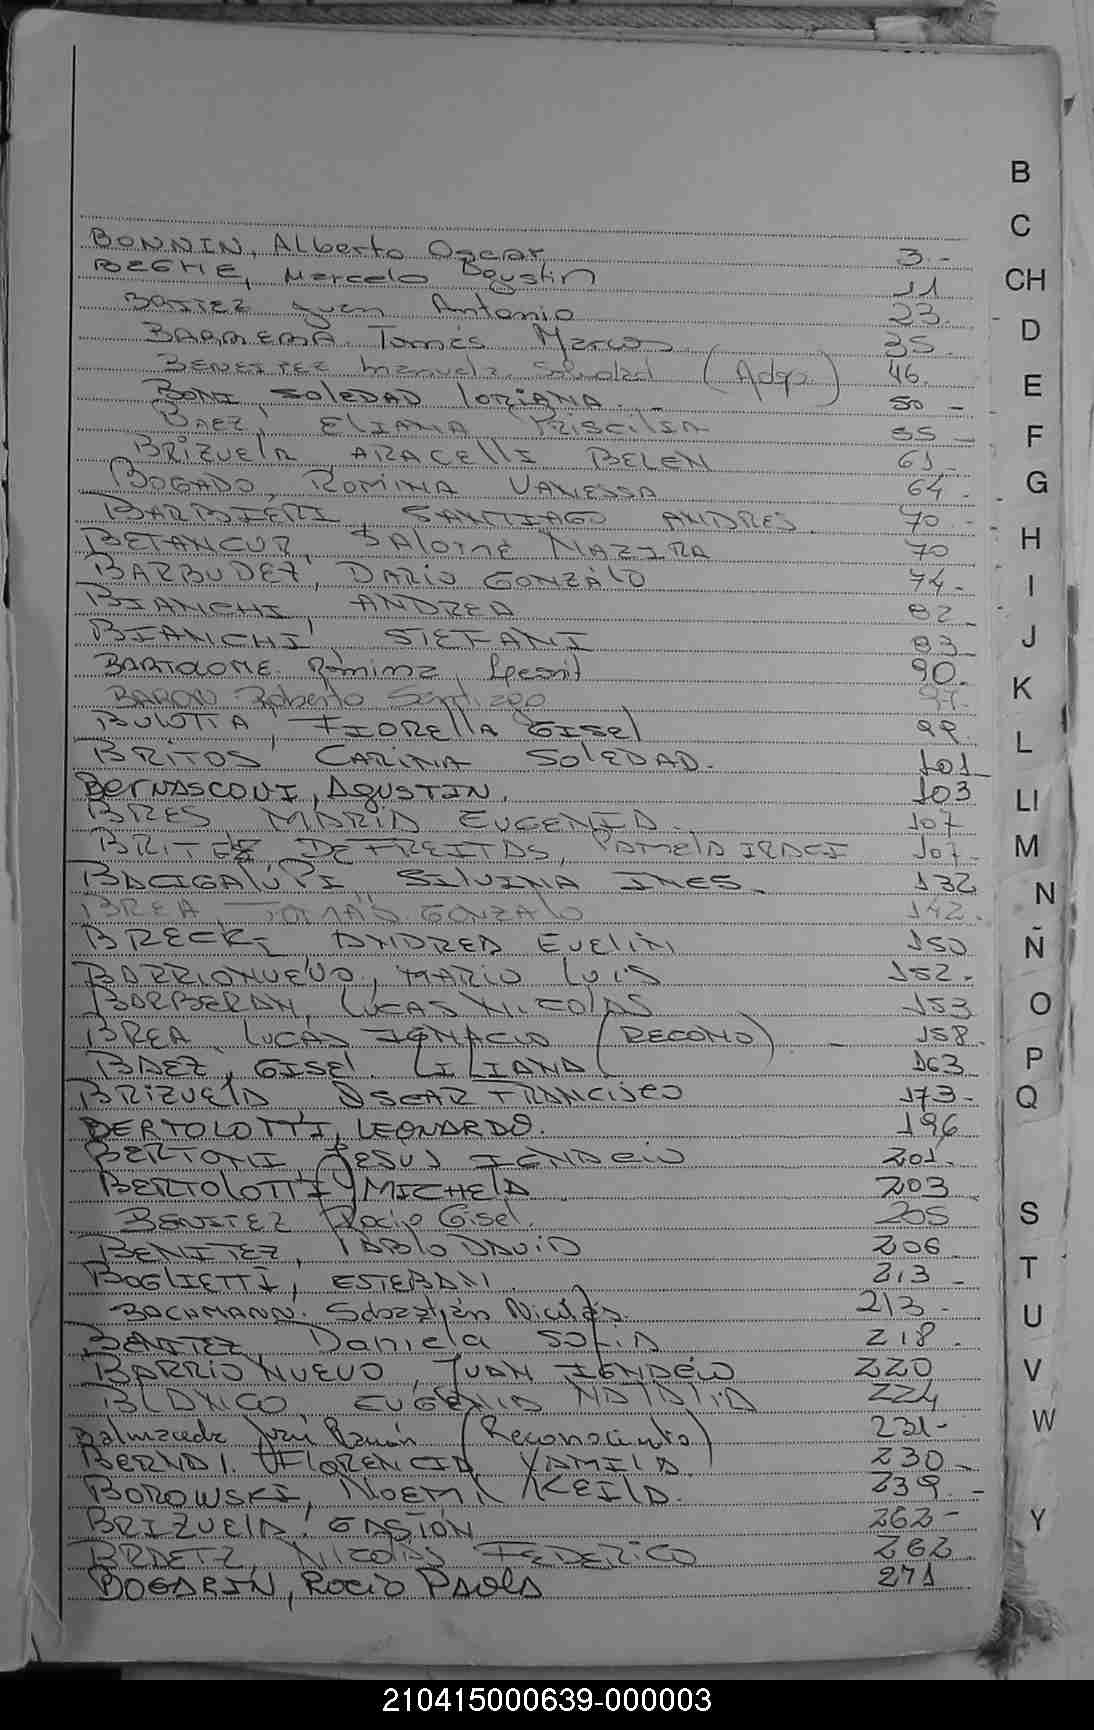 BONNIN, Alberto Oscar 3.-
BEGHE, Marcelo Agustin 11
BAITEZ Juan Antonio 23.
BARRERA. Tomás Marcos. 35.
BENEITEZ Manuela Soledad (Adop) 46.
BONI, SOLEDAD LORIANA. 50 -
BAEZ, ELIANA PRISCILSA 55 -
BRIZUELA ARACELLI BELEN 61-
BOGADO, ROMINA VANESSA 64.
BARBIERI, SANTIAGO ANDRES. 70.-
BETANCUR, SALOMÉ NAZIRA 70
BARBUDEZ, DARIO GONZÁLO 74.-
BIANCHI, ANDREA 82-
BIANCHI STEFANI 83-
BARTOLOME. Romina 90.
BARON Roberto Santiago 97.
BULOTTA, FIORELLA GISEL 99
BRITOS CARINA SOLEDAD. 101
BERNASCONI, AGUSTIN. 103
BRES MARIA EUGENIA. 107
BRITEZ, DE FREITAS, PAMELA IRACI 107.
BACIGALUPI, SILVINA INES. 132
BREA, TOMÁS GONZALO 142.
BRECK, ANDREA EVELIN 150
BARRIONUEVO, MARIO LUIS 152.
BARBERAN, LUCAS NICOLAS 153
BREA, LUCAS IGNACIO (RECONO) 158.
BAEZ, GISEL. LILIANA 163
BRIZUELA OSCAR FRANCISCO 173-
BERTOLOTTI, LEONARDO. 196
BERTONI, JESUS IGNACIO 201.
BERTOLOTTI MICHELA 203
BENITEZ Rocio Gisel. 205
BENITEZ, PABLO DAVID 206
BOGLIETTI, ESTEBAN 213 -
BACHMANN. Sebastián Nicolás. 213.
BENITEZ Daniela SOFIA 218.
BARRIONUEVO, JUAN IGNACIO 220
BLANCO EUGENIA NATALIA 224
Balmaceda José Ramón (Reconocimiento) 231-
BERNAL. FLORENCIA YAMILA. 230
BOROWSKI, NOEMI KEILA. 239.-
BRIZUELA. GASTÓN 262-
BRAETZ, NICOLAS FEDERICO 262
BOGARIN, ROCIO PAOLA 271
B
C
CH
D
E
F
G
H
I
J
K
L
Ll
M
N
Ñ
O
P
Q
S
T
U
V
W
Y
210415000639-000003